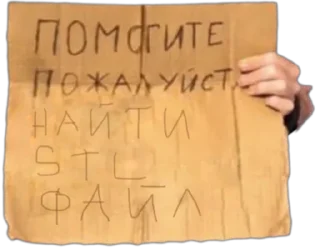 ПОМОГИТЕ
ПОЖАЛУЙСТ
НАЙТИ
STL
ФАЙЛ